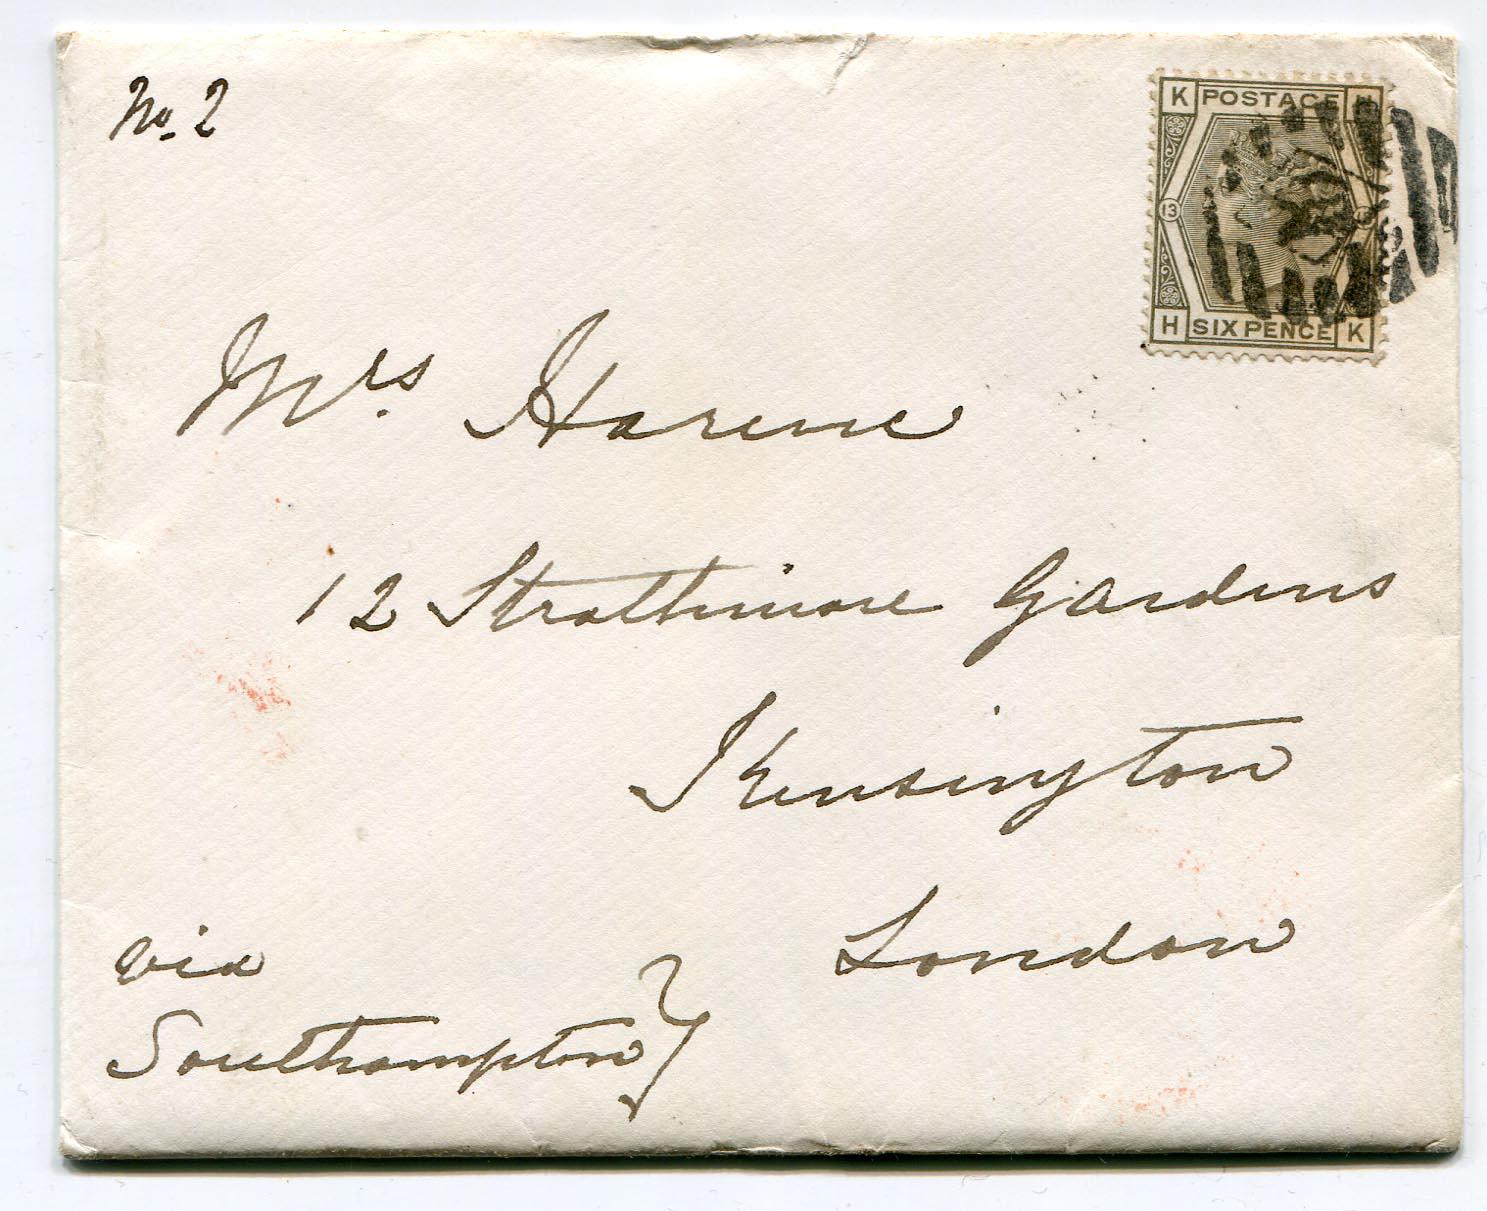 No. 2
K POSTAGE H
13
H SIX PENCE K
Mrs. Harene
12 Strathmore Gardens
Kensington
London
via
Southampton